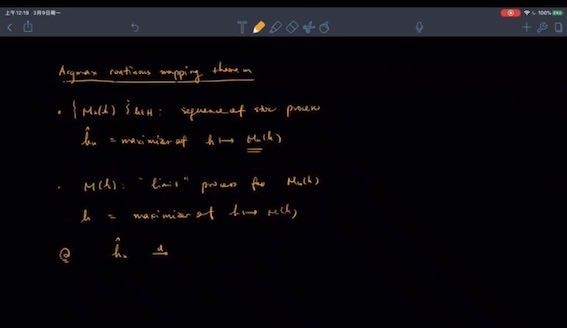 上午12:19 3月9日周一
100%
Argmax continuous mapping theorem
• { Mn(h) } h∈H : sequence of stoc process
ĥn = maximizer of h ↦ Mn(h)
• M(h) : "limit" process for Mn(h)
h = maximizer of h ↦ M(h)
Q ĥn d→